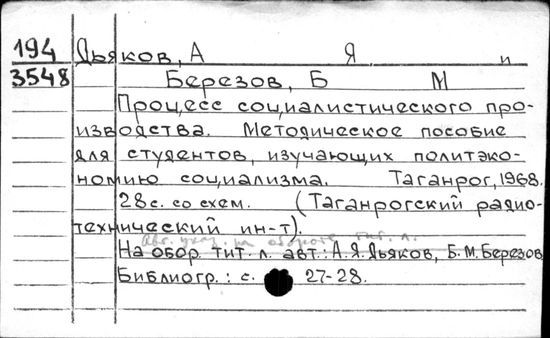 194 Дьяков, А Я и
3548 Березов, Б М
Процесс социалистического про-
изводства. Методическое пособие
для студентов, изучающих политэко-
номию социализма. Таганрог, 1968.
28 с. со схем. (Таганрогский радио-
технический ин-т).
Авт. указ. на обороте тит. л.
На обор. тит. л. авт.: А.Я. Дьяков, Б.М. Березов
Библиогр.: с. 27-28.